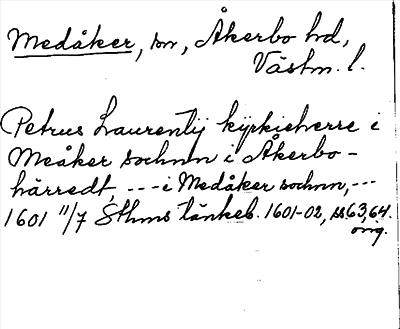 Medåker, sn, Åkerbo hd,
Västm. l.
Petrus Laurentij kyrkieherre i
Meåker sochnn i Åkerbo-
härredt, --- i Medåker sochnn, ---
1601 11/7 Sthms tänkeb. 1601-02, ss 63, 64.
orig.